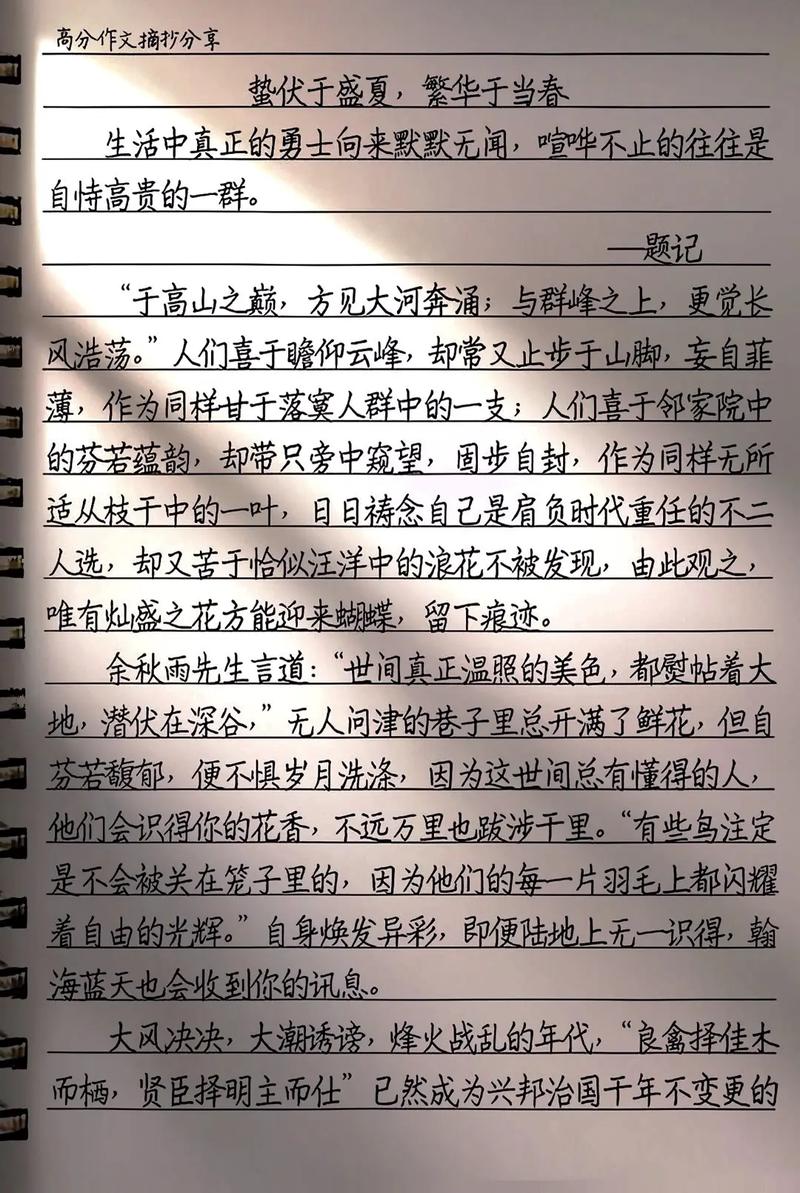 高分作文摘抄分享
蛰伏于盛夏，繁华于当春
生活中真正的勇士向来默默无闻，喧哗不止的往往是
自恃高贵的一群。
——题记
“于高山之巅，方见大河奔涌；与群峰之上，更觉长
风浩荡。”人们喜于瞻仰云峰，却常又止步于山脚，妄自菲
薄，作为同样甘于落寞人群中的一支；人们喜于邻家院中
的芬若蕴韵，却带只旁中窥望，固步自封，作为同样无所
适从枝干中的一叶，日日祷念自己是肩负时代重任的不二
人选，却又苦于恰似汪洋中的浪花不被发现，由此观之，
唯有灿盛之花方能迎来蝴蝶，留下痕迹。
余秋雨先生言道：“世间真正温照的美色，都熨帖着大
地，潜伏在深谷，”无人问津的巷子里总开满了鲜花，但自
芬若馥郁，便不惧岁月洗涤，因为这世间总有懂得的人，
他们会识得你的花香，不远万里也跋涉千里。“有些鸟注定
是不会被关在笼子里的，因为他们的每一片羽毛上都闪耀
着自由的光辉。”自身焕发异彩，即便陆地上无一识得，翰
海蓝天也会收到你的讯息。
大风决决，大潮诱谤，烽火战乱的年代，“良禽择佳木
而栖，贤臣择明主而仕”已然成为兴邦治国千年不变更的